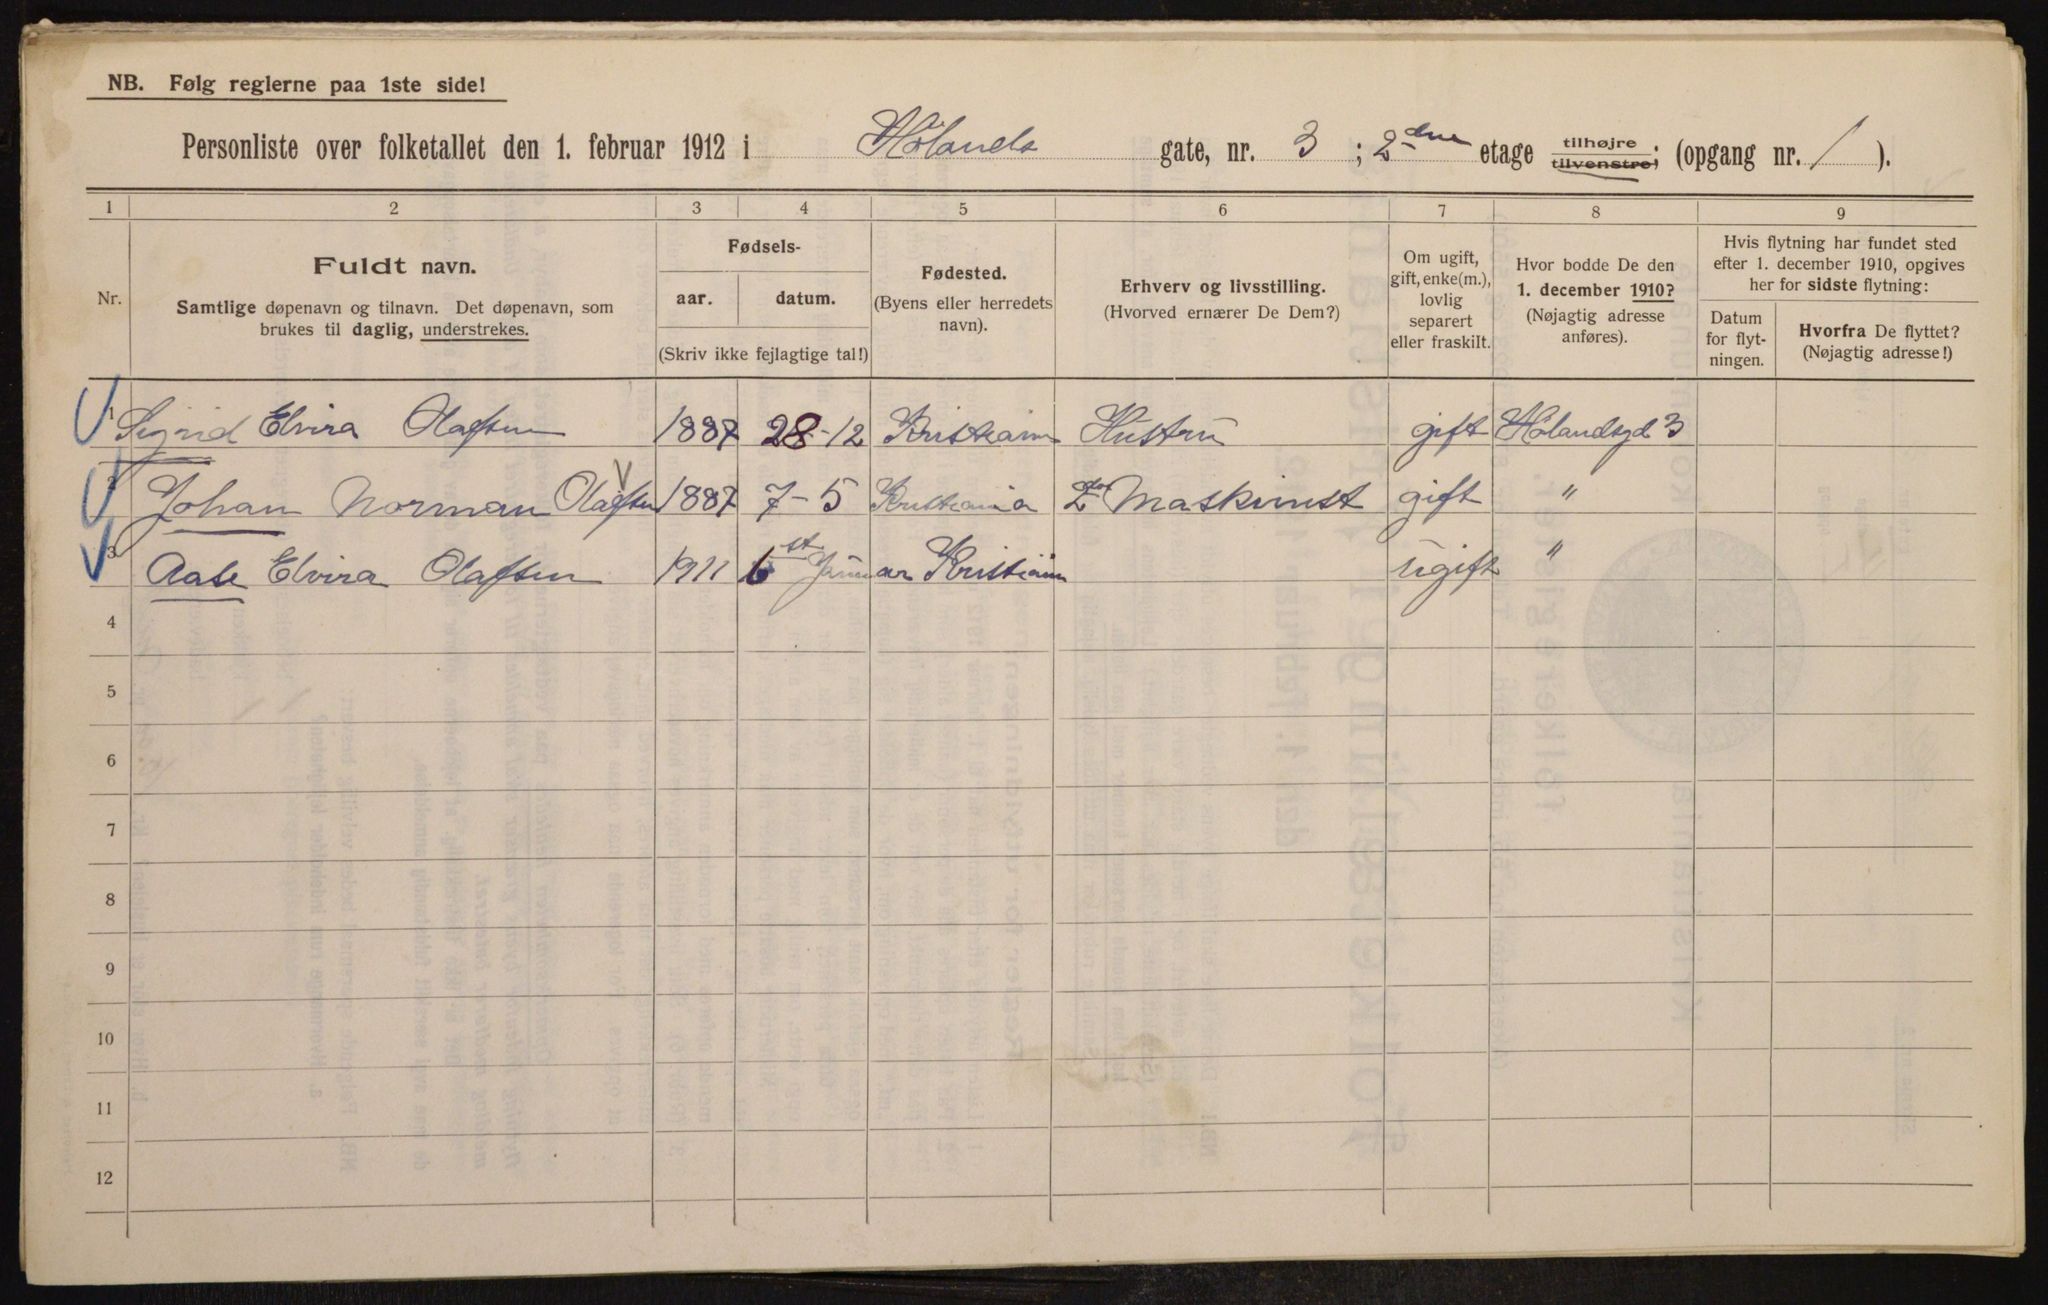 NB. Følg reglerne paa 1ste side!
Personliste over folketallet den 1. februar 1912 i Hølands gate, nr. 3 ; 2den etage tilhøjre tilvenstre; (opgang nr. 1 ).
1 2 3 4 5 6 7 8 9
Nr.
Fuldt navn.
Samtlige døpenavn og tilnavn. Det døpenavn, som
brukes til daglig, understrekes.
Fødsels-
aar. datum.
(Skriv ikke fejlagtige tal!)
Fødested.
(Byens eller herredets
navn).
Erhverv og livsstilling.
(Hvorved ernærer De Dem?)
Om ugift,
gift, enke(m.),
lovlig
separert
eller fraskilt.
Hvor bodde De den
1. december 1910?
(Nøjagtig adresse
anføres).
Hvis flytning har fundet sted
efter 1. december 1910, opgives
her for sidste flytning:
Datum
for flyt-
ningen.
Hvorfra De flyttet?
(Nøjagtig adresse!)
1 Sigrid Elvira Olafsen 1887 28-12 Kristiania Hustru gift Hølandsgd 3
2 Johan Norman Olafsen 1887 7-5 Kristiania 2den Maskinist gift "
3 Aase Elvira Olafsen 1911 Januar Kristiania Ugift "
4
5
6
7
8
9
10
11
12